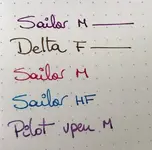 Sailor M
Delta F
Sailor M
Sailor HF
Pilot vpen M